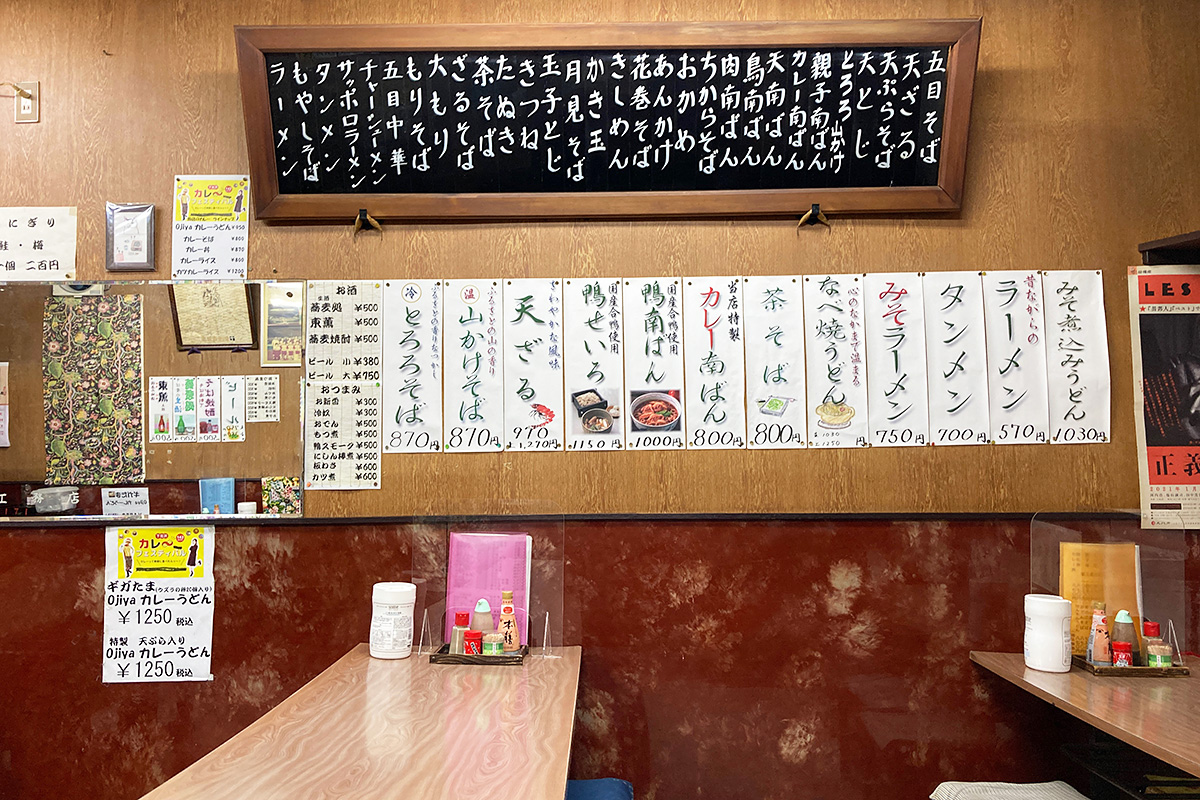 五目そば
天ざる
天ぷらそば
天とじ
とろろ 山かけ
親子南ばん
カレー南ばん
天南ばん
鳥南ばん
肉南ばん
ちからそば
おかめ
あんかけ
花巻そば
きしめん
かき玉
月見そば
玉子とじ
きつね
たぬき
茶そば
ざるそば
大もり
もりそば
五目中華
チャーシューメン
サッポロラーメン
タンメン
もやしそば
ラーメン
みそ煮込みうどん
1030円
昔ながらの
ラーメン
570円
タンメン
700円
みそラーメン
750円
心のなかまで温まる
なべ焼うどん
茶そば
800円
当店特製
カレー南ばん
800円
国産合鴨使用
鴨南ばん
1000円
国産合鴨使用
鴨せいろ
1150円
さわやかな風味
天ざる
970
1,270円
温
ふるさとの山の香り
山かけそば
870円
冷
ふるさとの香りなつかし
とろろそば
870円
お酒
生酒
蕎麦処 ¥500
東薫 ¥500
蕎麦焼酎 ¥500
ビール 小 ¥380
ビール 大 ¥750
おつまみ
お新香 ¥300
冷奴 ¥300
おでん ¥500
もつ煮 ¥500
鴨スモーク ¥500
にしん棒煮 ¥500
板わさ ¥600
カツ煮 ¥600
カレ〜
Ojiya カレーうどん ¥950
カレーそば ¥800
カレー丼 ¥870
カレーライス ¥800
カツカレーライス ¥1200
にぎり
鮭・梅
一個 二百円
カレ〜
フェスティバル
ギガたま
Ojiya カレーうどん
¥1250 税込
特製 天ぷら入り
Ojiya カレーうどん
¥1250 税込
LES
正義